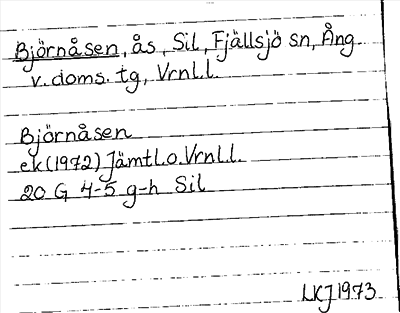 Björnåsen, ås, Sil, Fjällsjö sn, Ång.
v. doms. tg, Vrnl.l.
Björnåsen
ek (1972) Jämtl.o.Vrnl.l.
20 G 4-5 g-h Sil
LKJ 1973